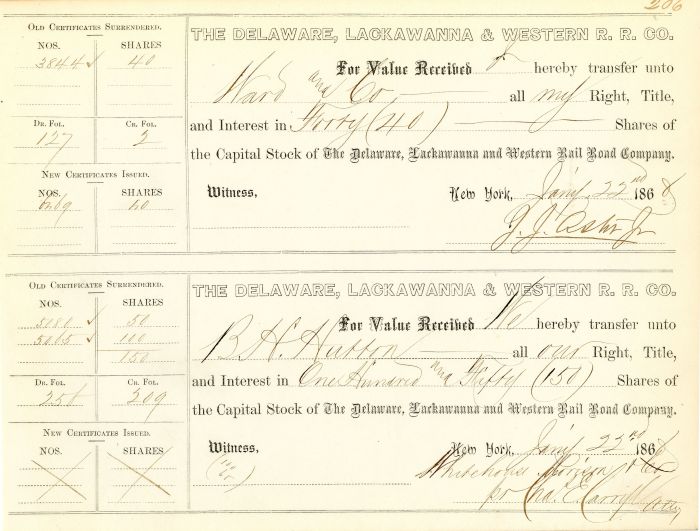 206
OLD CERTIFICATES SURRENDERED.
NOS. SHARES
3844 ✓ 40
DR. FOL. CR. FOL.
127 2
NEW CERTIFICATES ISSUED.
NOS. SHARES
THE DELAWARE, LACKAWANNA & WESTERN R. R. CO.
For Value Received I hereby transfer unto
Ward and Co all my Right, Title,
and Interest in Forty (40) Shares of
the Capital Stock of The Delaware, Lackawanna and Western Rail Road Company.
Witness, New York, Jany 22nd 1868
J. J. Astor Jr
OLD CERTIFICATES SURRENDERED.
NOS. SHARES
5080 ✓ 50
5005 ✓ 100
150
DR. FOL. CR. FOL.
256 209
NEW CERTIFICATES ISSUED.
NOS. SHARES
THE DELAWARE, LACKAWANNA & WESTERN R. R. CO.
For Value Received We hereby transfer unto
B. H. Hutton all our Right, Title,
and Interest in One Hundred and Fifty (150) Shares of
the Capital Stock of The Delaware, Lackawanna and Western Rail Road Company.
Witness, New York, Jany 22nd 1868
Whitehouse Morison & Co
pr Cha. E. Atty